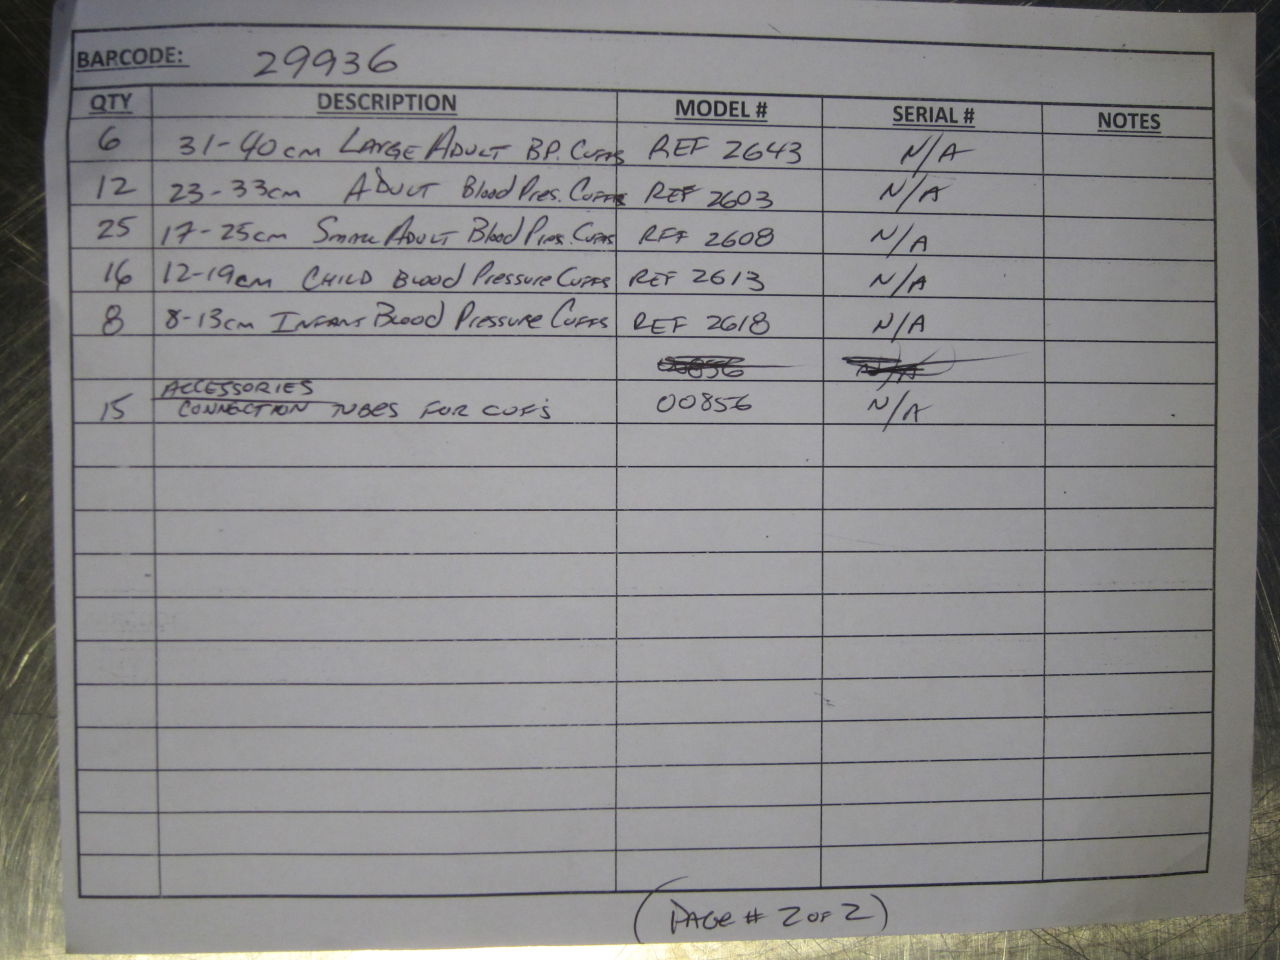 BARCODE: 29936
QTY DESCRIPTION MODEL # SERIAL # NOTES
6 31-40cm LARGE ADULT B.P. Cuffs REF 2643 N/A
12 23-33cm ADULT Blood Pres. Cuffs REF 2603 N/A
25 17-25cm SMALL ADULT Blood Pres. Cuffs REF 2608 N/A
16 12-19cm CHILD Blood Pressure Cuffs REF 2613 N/A
8 8-13cm INFANT Blood Pressure Cuffs REF 2618 N/A
ACCESSORIES
15 CONNECTION TUBES FOR CUFS 00856 N/A
(PAGE # 2 OF 2)